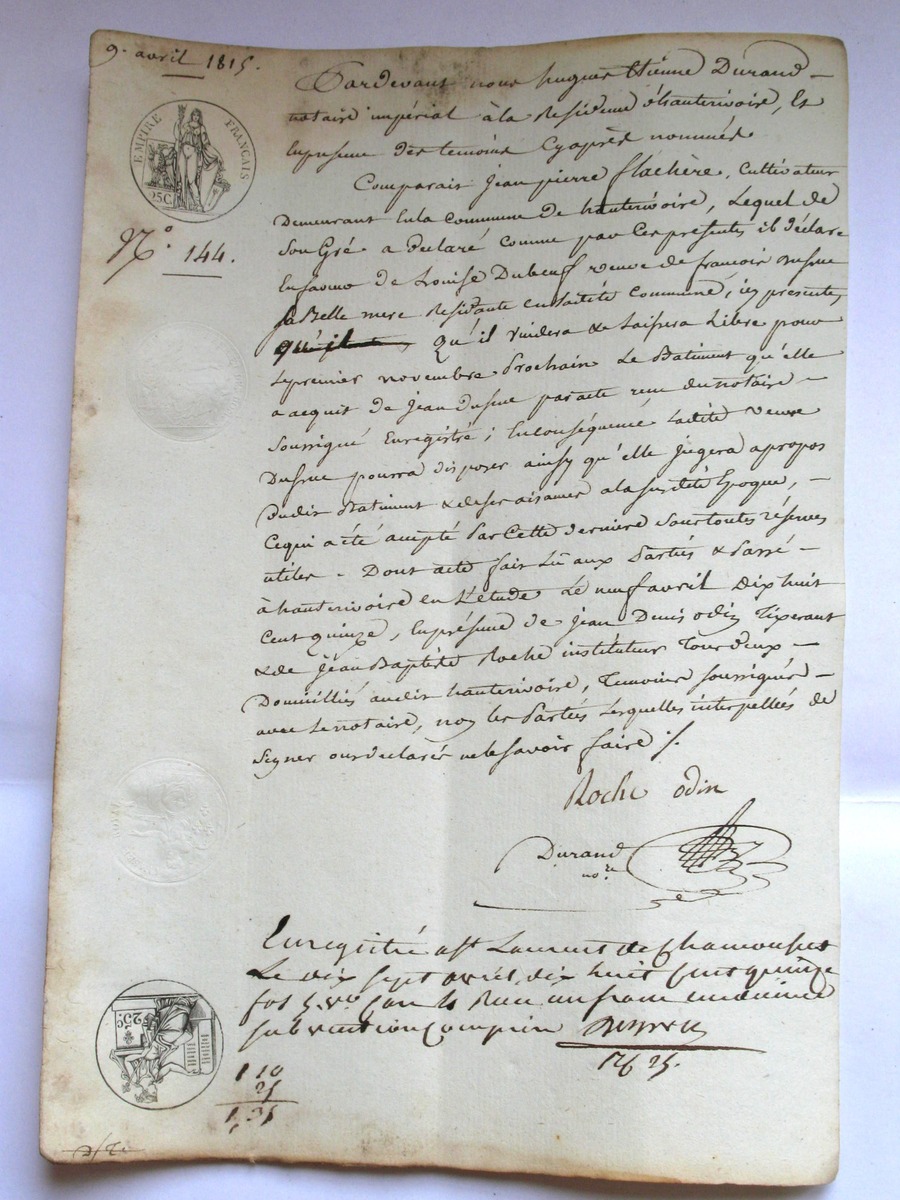 9. avril 1815.
Pardevant nous hugues Etienne Durand
notaire impérial à la Residence d'hauterivoire, Et
Enpresence des temoins Cyaprès nommés
EMPIRE FRANÇAIS
25C.
N.° 144.
Comparait Jean pierre flachère, Cultivateur
Demeurant Enla Commune de hauterivoire, Lequel de
Son Gré a déclaré comme par Ces presentes il déclare
En faveur de Louise Duboeuf veuve de francois
sa Belle mere Residante en laditte Commune, icy presente,
qu'il Qu'il vuidera & Laissera Libre pour
Lepremier novembre Prochain Le Batiment qu'elle
a acquit de Jean par acte reçu du notaire
Soussigné Enregistré; Enconséquence Ladite veuve
pourra disposer ainsy qu'elle jugera apropos
dudit Batiment & deses aisances ala susditte Epoque,
Cequi a été accepté Par Cette derniere Sous toutes réserves
utiles - Dont acte fait Lû aux Parties & Passé
à hauterivoire en L'étude Le neuf avril Dix huit
Cent quinze, Enprésence de Jean Denis odin Tixerant
& de Jean Baptiste Roche instituteur Tous deux
Domicilliés audit hauterivoire, Temoins soussignés
avec Lenotaire, non les Parties Lesquelles interpellées de
Signer ont declarés nele savoir faire /.
Roche odin
Durand
no.re
Enregistré a St Laurent de Chamousset
Le dix sept avril dix huit cent quinze
fol 5 v.o Reçu un franc un decime
subvention Comprise
25c.
1 10
25
1,35
1f 25.